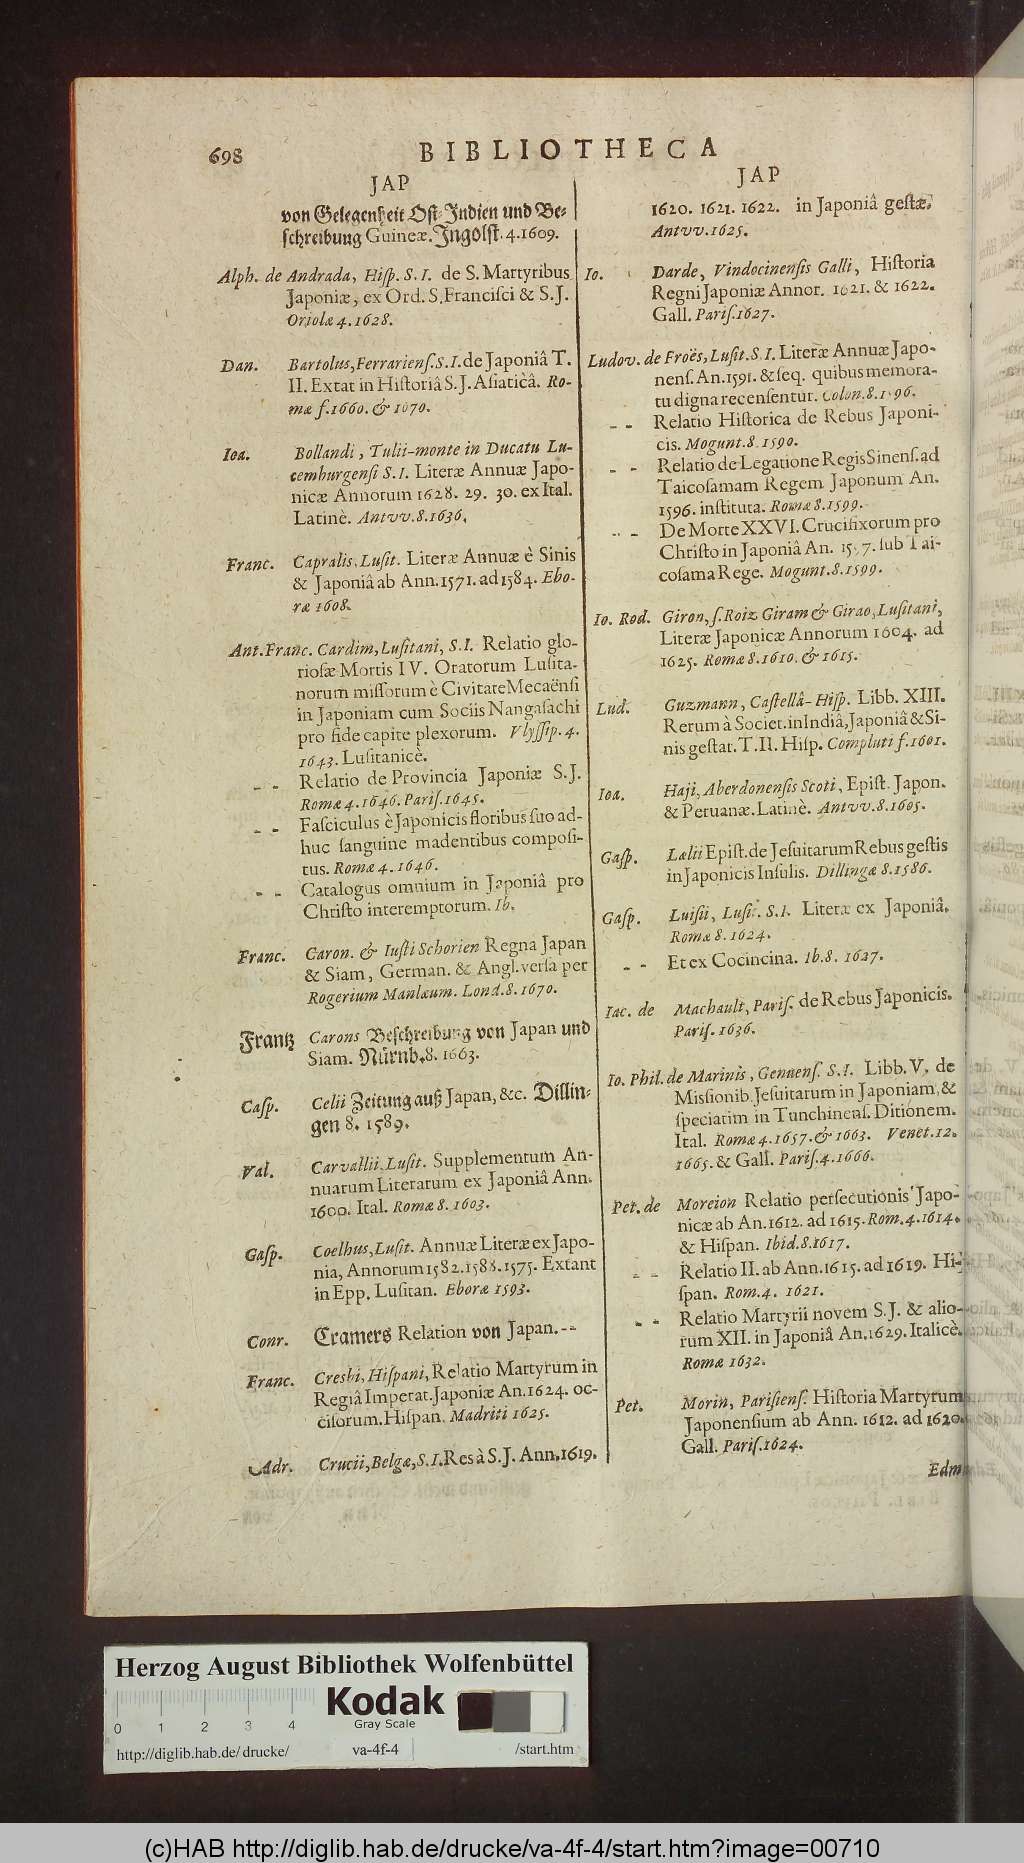 698
BIBLIOTHECA
JAP
von Gelegenheit Ost-Indien und Be-
schreibung Guineæ. Ingolst. 4. 1609.
Alph. de Andrada, Hiſp. S. I. de S. Martyribus
Japoniæ, ex Ord. S. Franciſci & S. J.
Oriolæ 4. 1628.
Dan. Bartolus, Ferrarienſ. S. I. de Japoniâ T.
II. Extat in Hiſtoriâ S. J. Aſiaticâ. Ro-
mæ f. 1660. & 1670.
Ioa. Bollandi, Tulii-monte in Ducatu Lu-
cemburgenſi S. I. Literæ Annuæ Japo-
nicæ Annorum 1628. 29. 30. ex Ital.
Latinè. Antvv. 8. 1636.
Franc. Capralis, Luſit. Literæ Annuæ è Sinis
& Japoniâ ab Ann. 1571. ad 1584. Ebo-
ræ 1608.
Ant. Franc. Cardim, Luſitani, S. I. Relatio glo-
rioſæ Mortis IV. Oratorum Luſita-
norum miſſorum è Civitate Mecaënſi
in Japoniam cum Sociis Nangaſachi
pro fide capite plexorum. Vlyſſip. 4.
1643. Luſitanicè.
- - Relatio de Provincia Japoniæ S. J.
Romæ 4. 1646. Pariſ. 1645.
- - Faſciculus è Japonicis floribus ſuo ad-
huc ſanguine madentibus compoſi-
tus. Romæ 4. 1646.
- - Catalogus omnium in Japoniâ pro
Chriſto interemptorum. Ib.
Franc. Caron. & Iuſti Schorien Regna Japan
& Siam, German. & Angl. verſa per
Rogerium Manlæum. Lond. 8. 1670.
Frantz Carons Beschreibung von Japan und
Siam. Nürnb. 8. 1663.
Caſp. Celii Zeitung auß Japan, &c. Dillin-
gen 8. 1589.
Val. Carvallii, Luſit. Supplementum An-
nuarum Literarum ex Japoniâ Ann.
1600. Ital. Romæ 8. 1603.
Gaſp. Coelhus, Luſit. Annuæ Literæ ex Japo-
nia, Annorum 1582. 1588. 1575. Extant
in Epp. Luſitan. Eboræ 1593.
Conr. Cramers Relation von Japan. - -
Franc. Cresbi, Hiſpani, Relatio Martyrum in
Regiâ Imperat. Japoniæ An. 1624. oc-
ciſorum. Hiſpan. Madriti 1625.
Adr. Crucii, Belgæ, S. I. Res à S. J. Ann. 1619.
JAP
1620. 1621. 1622. in Japoniâ geſtæ.
Antvv. 1625.
Io. Darde, Vindocinenſis Galli, Hiſtoria
Regni Japoniæ Annor. 1621. & 1622.
Gall. Pariſ. 1627.
Ludov. de Froës, Luſit. S. I. Literæ Annuæ Japo-
nenſ. An. 1591. & ſeq. quibus memora-
tu digna recenſentur. Colon. 8. 1596.
- - Relatio Hiſtorica de Rebus Japoni-
cis. Mogunt. 8. 1590.
- - Relatio de Legatione Regis Sinenſ. ad
Taicoſamam Regem Japonum An.
1596. inſtituta. Romæ 8. 1599.
- - De Morte XXVI. Crucifixorum pro
Chriſto in Japoniâ An. 1597. ſub Tai-
coſama Rege. Mogunt. 8. 1599.
Io. Rod. Giron, ſ. Roiz Giram & Girao, Luſitani,
Literæ Japonicæ Annorum 1604. ad
1625. Romæ 8. 1610. & 1615.
Lud. Guzmann, Caſtellâ-Hiſp. Libb. XIII.
Rerum à Societ. in Indiâ, Japoniâ & Si-
nis geſtar. T. II. Hiſp. Compluti f. 1601.
Ioa. Haji, Aberdonenſis Scoti, Epiſt. Japon.
& Peruanæ. Latinè. Antvv. 8. 1605.
Gaſp. Lælii Epiſt. de Jeſuitarum Rebus geſtis
in Japonicis Inſulis. Dillingæ 8. 1586.
Gaſp. Luiſii, Luſit. S. I. Literæ ex Japoniâ.
Romæ 8. 1624.
- - Et ex Cocincina. Ib. 8. 1627.
Iac. de Machault, Pariſ. de Rebus Japonicis.
Pariſ. 1636.
Io. Phil. de Marinis, Genuenſ. S. I. Libb. V. de
Miſſionib. Jeſuitarum in Japoniam, &
ſpeciatim in Tunchinenſ. Ditionem.
Ital. Romæ 4. 1657. & 1663. Venet. 12.
1665. & Gall. Pariſ. 4. 1666.
Pet. de Moreion Relatio perſecutionis Japo-
nicæ ab An. 1612. ad 1615. Rom. 4. 1614.
& Hiſpan. Ibid. 8. 1617.
- - Relatio II. ab Ann. 1615. ad 1619. Hi-
ſpan. Rom. 4. 1621.
- - Relatio Martyrii novem S. J. & alio-
rum XII. in Japoniâ An. 1629. Italicè.
Romæ 1632.
Pet. Morin, Pariſienſ. Hiſtoria Martyrum
Japonenſium ab Ann. 1612. ad 1620.
Gall. Pariſ. 1624.
Edm
Herzog August Bibliothek Wolfenbüttel
0 1 2 3 4
Kodak
Gray Scale
http://diglib.hab.de/drucke/ va-4f-4 /start.htm
(c)HAB http://diglib.hab.de/drucke/va-4f-4/start.htm?image=00710